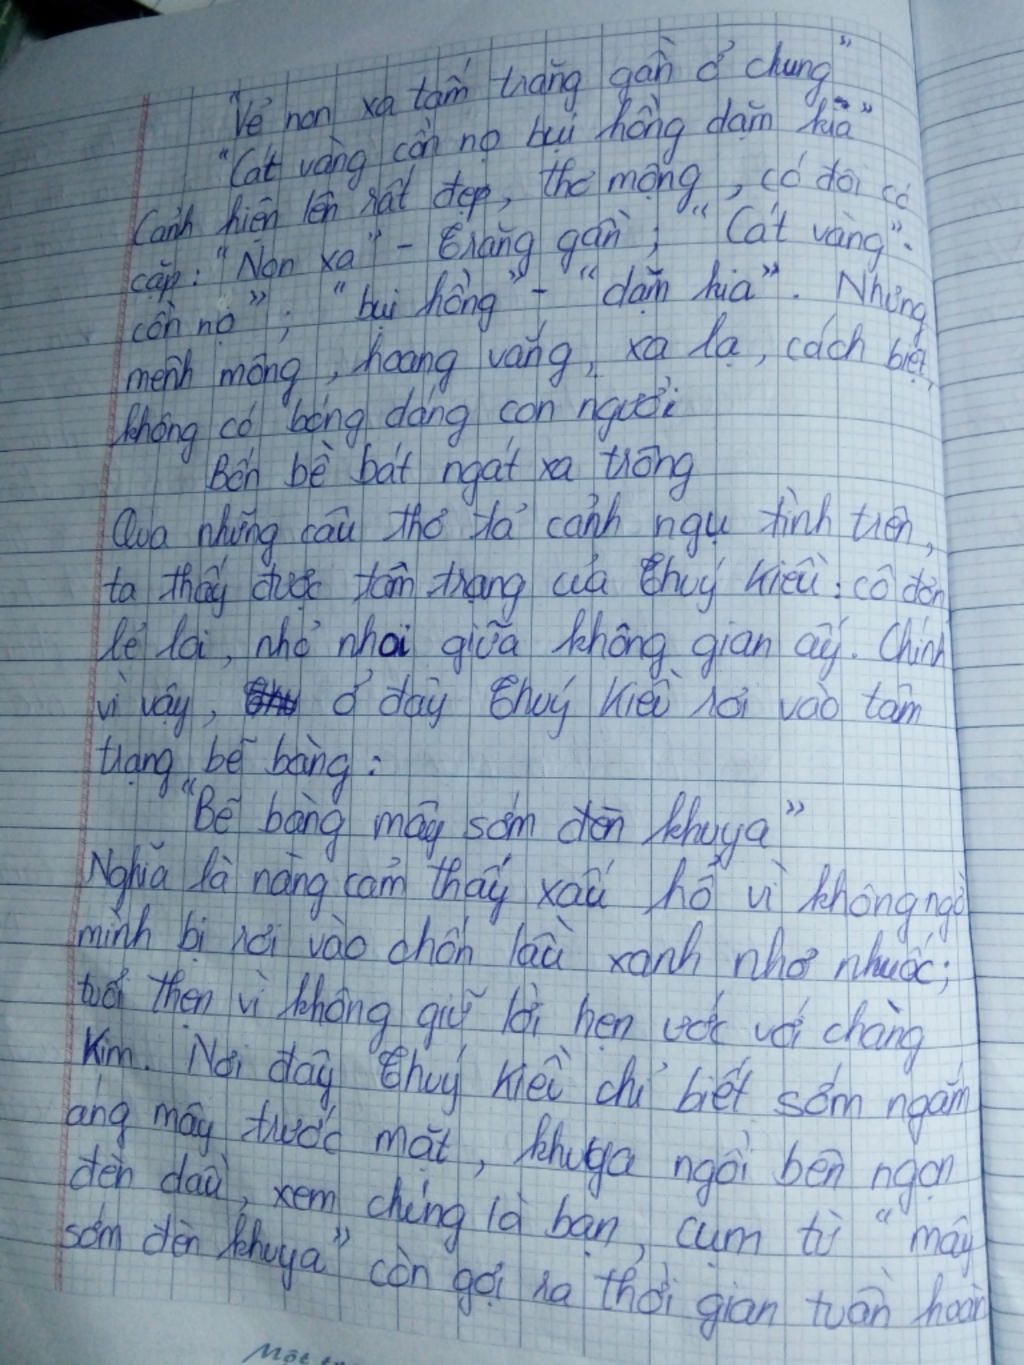 "Vẻ non xa tấm trăng gần ở chung"
"Cát vàng cồn nọ bụi hồng dặm kia"
Cảnh hiện lên rất đẹp, thơ mộng, có đôi có
cặp: "Non xa" - trăng gần; "Cát vàng" -
cồn nọ"; "bụi hồng" - "dặm kia". Nhưng
mênh mông, hoang vắng, xa lạ, cách biệt,
không có bóng dáng con người
Bốn bề bát ngát xa trông
Qua những câu thơ tả cảnh ngụ tình trên,
ta thấy được tâm trạng của Thuý Kiều: cô đơn
lẻ loi, nhỏ nhoi giữa không gian ấy. Chính
vì vậy, ở đây Thuý Kiều rơi vào tâm
trạng bẽ bàng:
"Bẽ bàng mây sớm đèn khuya"
Nghĩa là nàng cảm thấy xấu hổ vì không ngờ
mình bị rơi vào chốn lầu xanh nhơ nhuốc;
tủi thẹn vì không giữ lời hẹn ước với chàng
Kim. Nơi đây Thuý Kiều chỉ biết sớm ngắm
áng mây trước mặt, khuya ngồi bên ngọn
đèn dầu, xem chúng là bạn, cụm từ "mây
sớm đèn khuya" còn gợi ra thời gian tuần hoàn
Một